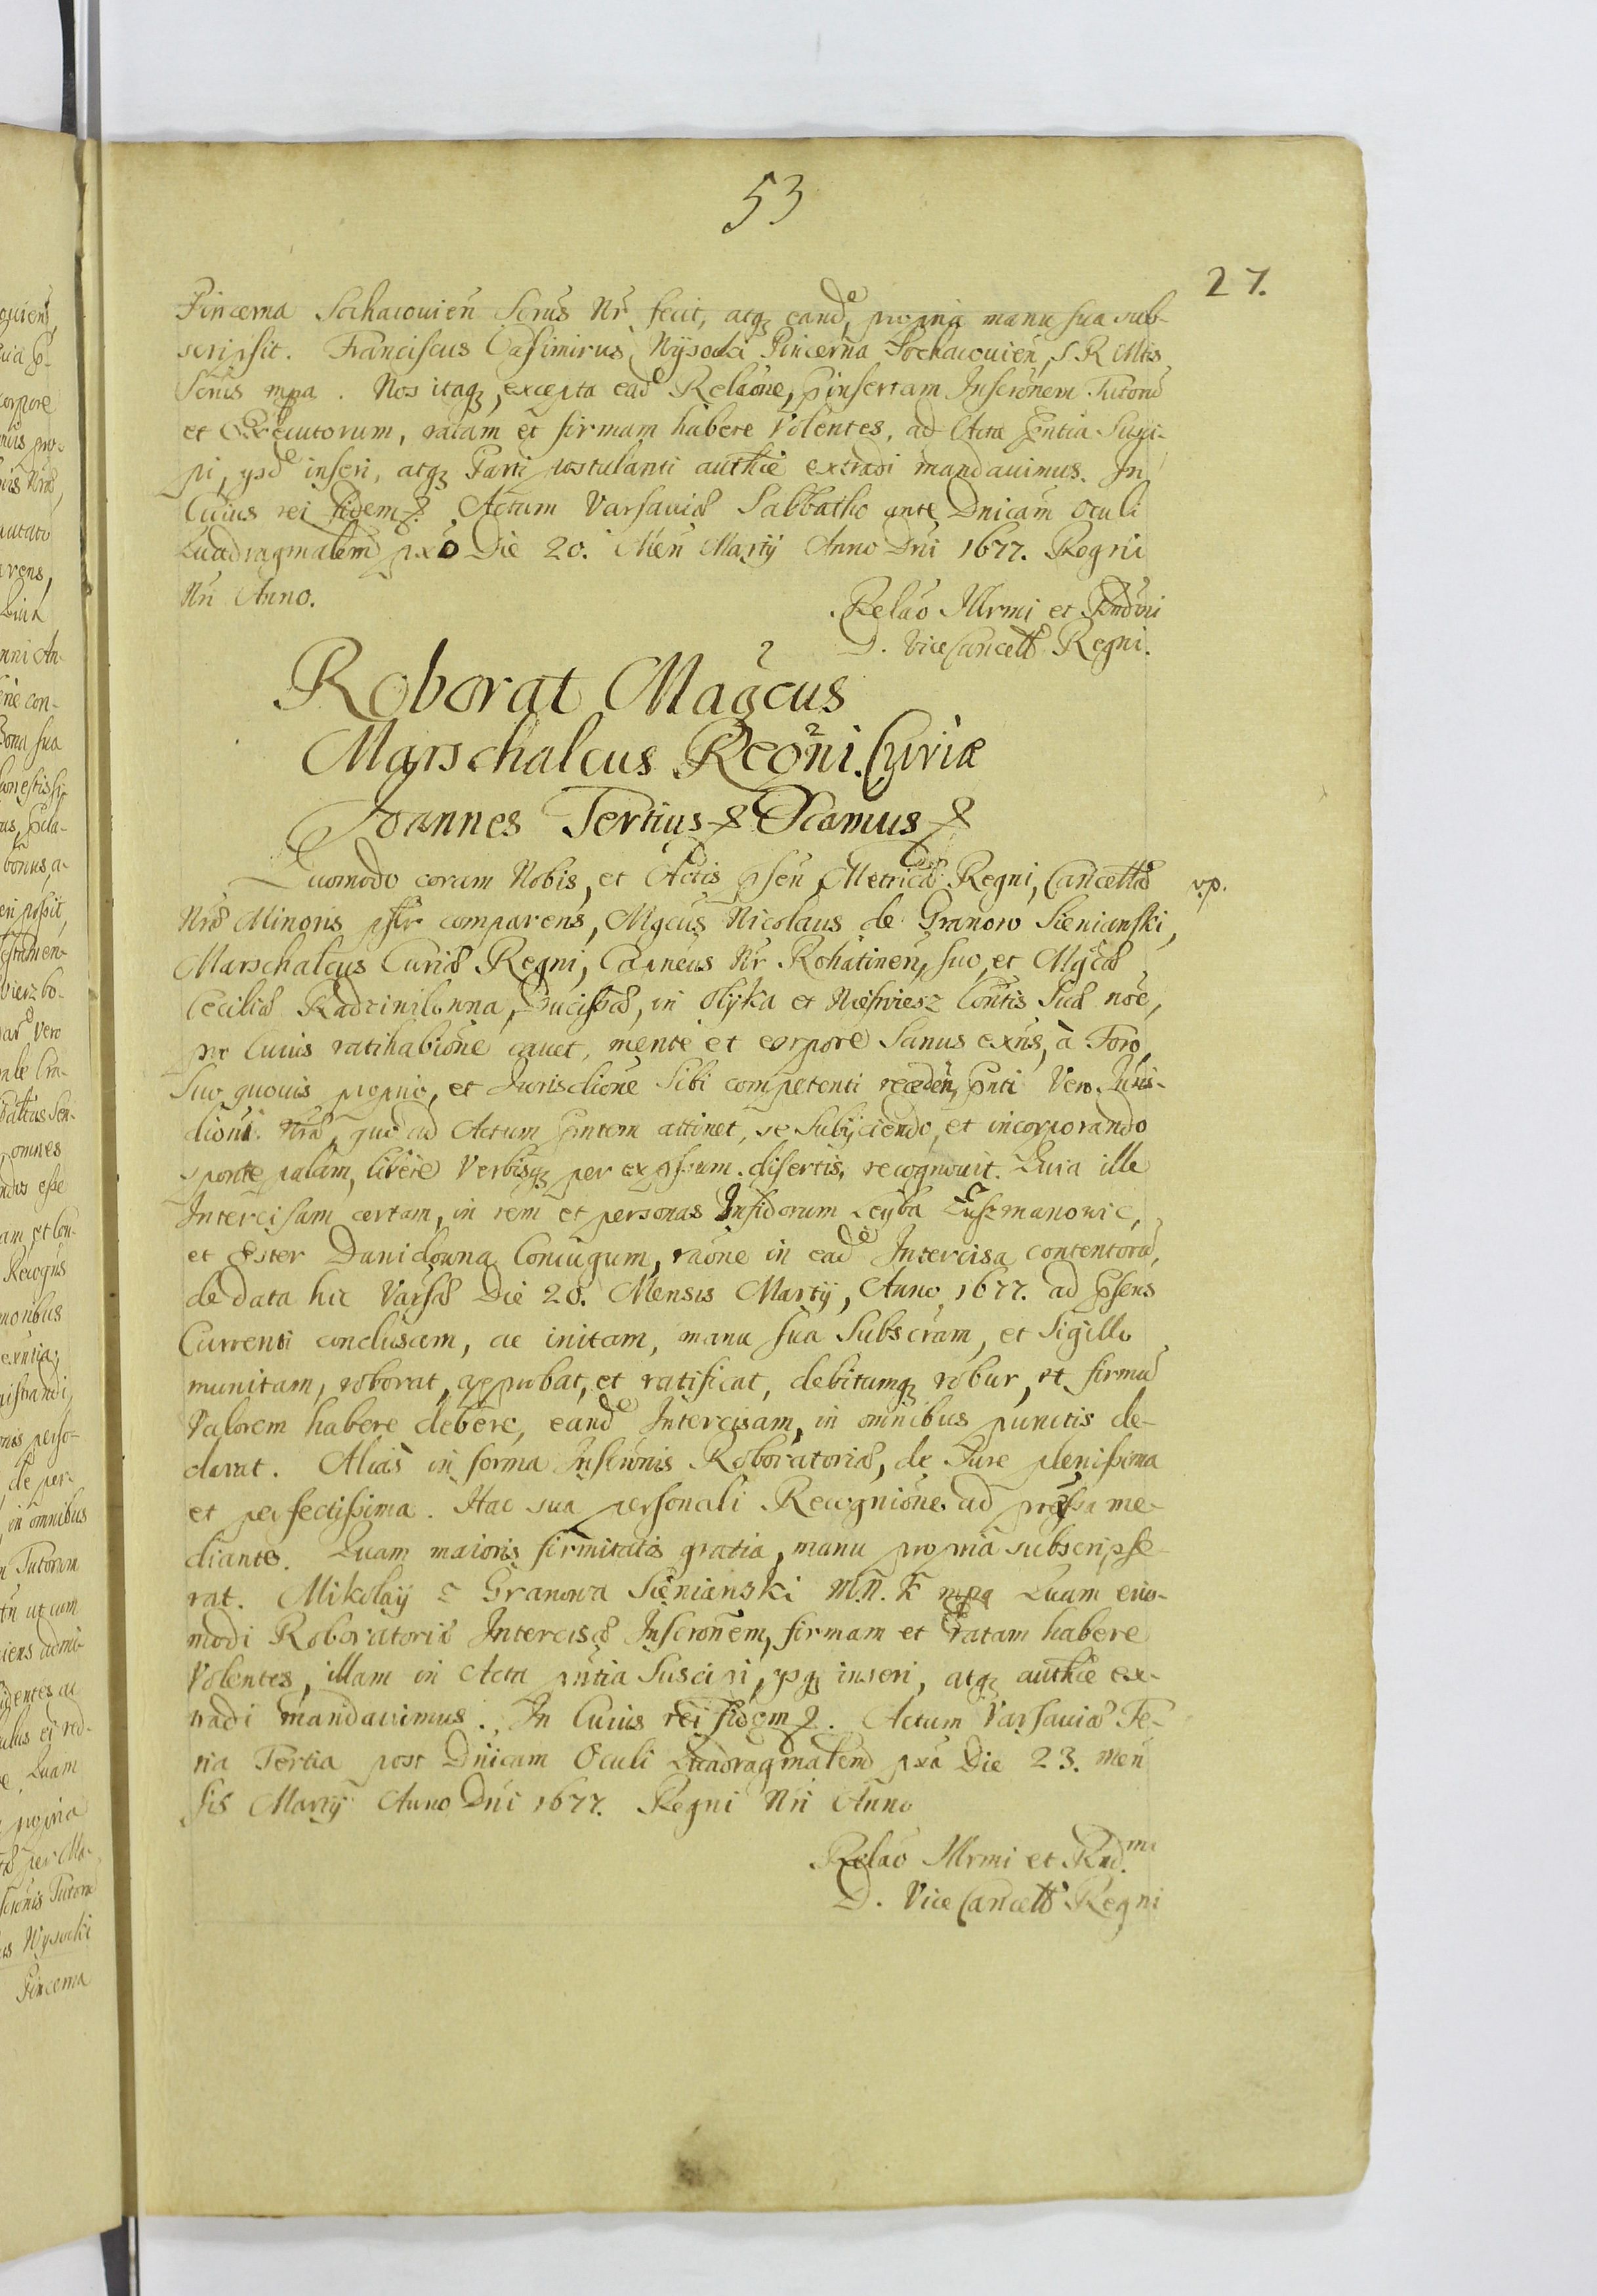 53
27.
Pincerna Sochacouień Scrus Nr̃ fecit, atq₃ eandẽ, propria manu sua sub-
scripsit. Franciscus Casimirus Wysocki Pincerna Sochacouień, S R Mtis
Scrus mpa. Nos itaq₃, excepta eadẽ Relaõne, pinsertam Inscrõnem Tutorũ
et Executorum, ratam et firmam habere Volentes, ad Acta pn̄tia Susci-
pi, ijsdẽ inseri, atq₃ Parti postulanti authẽe extradi mandauimus. In
Cuius rei fidem ꝑ. Actum Varsauiæ Sabbatho ante Dnicam Oculi
Quadragmalem pxõ Die 20. Men Martij Anno Dni 1677. Regni
Nri Anno.
Relaõ Illrmi et Rndmi
D. ViceCancell Regni.
Roborat Magcus
Marschalcus Regni Curiæ
Joannes Tertius ꝑ Scamus ꝑ
Quomodo coram Nobis, et Actis psen Metricæ Regni, Cancellæ
v.p.
Nræ Minoris pslr comparens, Mgcus Nicolaus de Granow Sienianski,
Marschalcus Curiæ Regni, Capneus Nr Rohatinen, suo, et Mgcæ
Ceciliæ Radziwilowna, Ducissæ, in Olyka et Nieswiesz Contis Suæ noẽ,
pro Cuius ratihabiõne cauet, mente et corpore Sanus exns, à Foro
Suo quouis proprio, et Jurisdiõne Sibi competenti receden, pnti Vero Juris-
dioni Nræ, quo ad Actum pntem attinet, se Subijciendo, et incorporando
sponte palam, libere Verbisq₃ per expssum disertis, recognouit. Quia ille
Intercisam certam, in rem et personas Infidorum Leyba Luszmanowic,
et Ester Danielowna Coniugum, raõne in eadẽ Intercisa contentorũ,
de data hic Varsæ Die 20. Mensis Martij, Anno 1677. ad psens
Currenti conclusam, ac initam, manu sua Subscram, et Sigillo
munitam, roborat, approbat, et ratificat, debitumq₃ robur, et firmũ
Valorem habere debere, eandẽ Intercisam, in omnibus punctis de-
clarat. Aliàs in forma Inscrõnis Roboratoriæ, de Jure plenissima
et perfectissima. Hac sua personali Recogniõne ad pmssa me-
diante. Quam maioris firmitatis gratia, manu propria subscripse-
rat. Mikołay z Granowa Sienianski M.N.K mpa Quam eius-
modi Roboratoriæ Intercisæ Inscronem, firmam et ratam habere
Volentes, illam in Acta pntia Suscipi, ijsq₃ inseri, atq₃ authẽe ex-
tradi mandauimus. In Cuius rei fidem ꝑ. Actum Varsauiæ Fe-
ria Tertia post Dnicam Oculi Quadragmalem pxa Die 23. Men
sis Martij Anno Dni 1677. Regni Nri Anno
Relaõ Illrmi et Rnd.mi
D. ViceCancell Regni